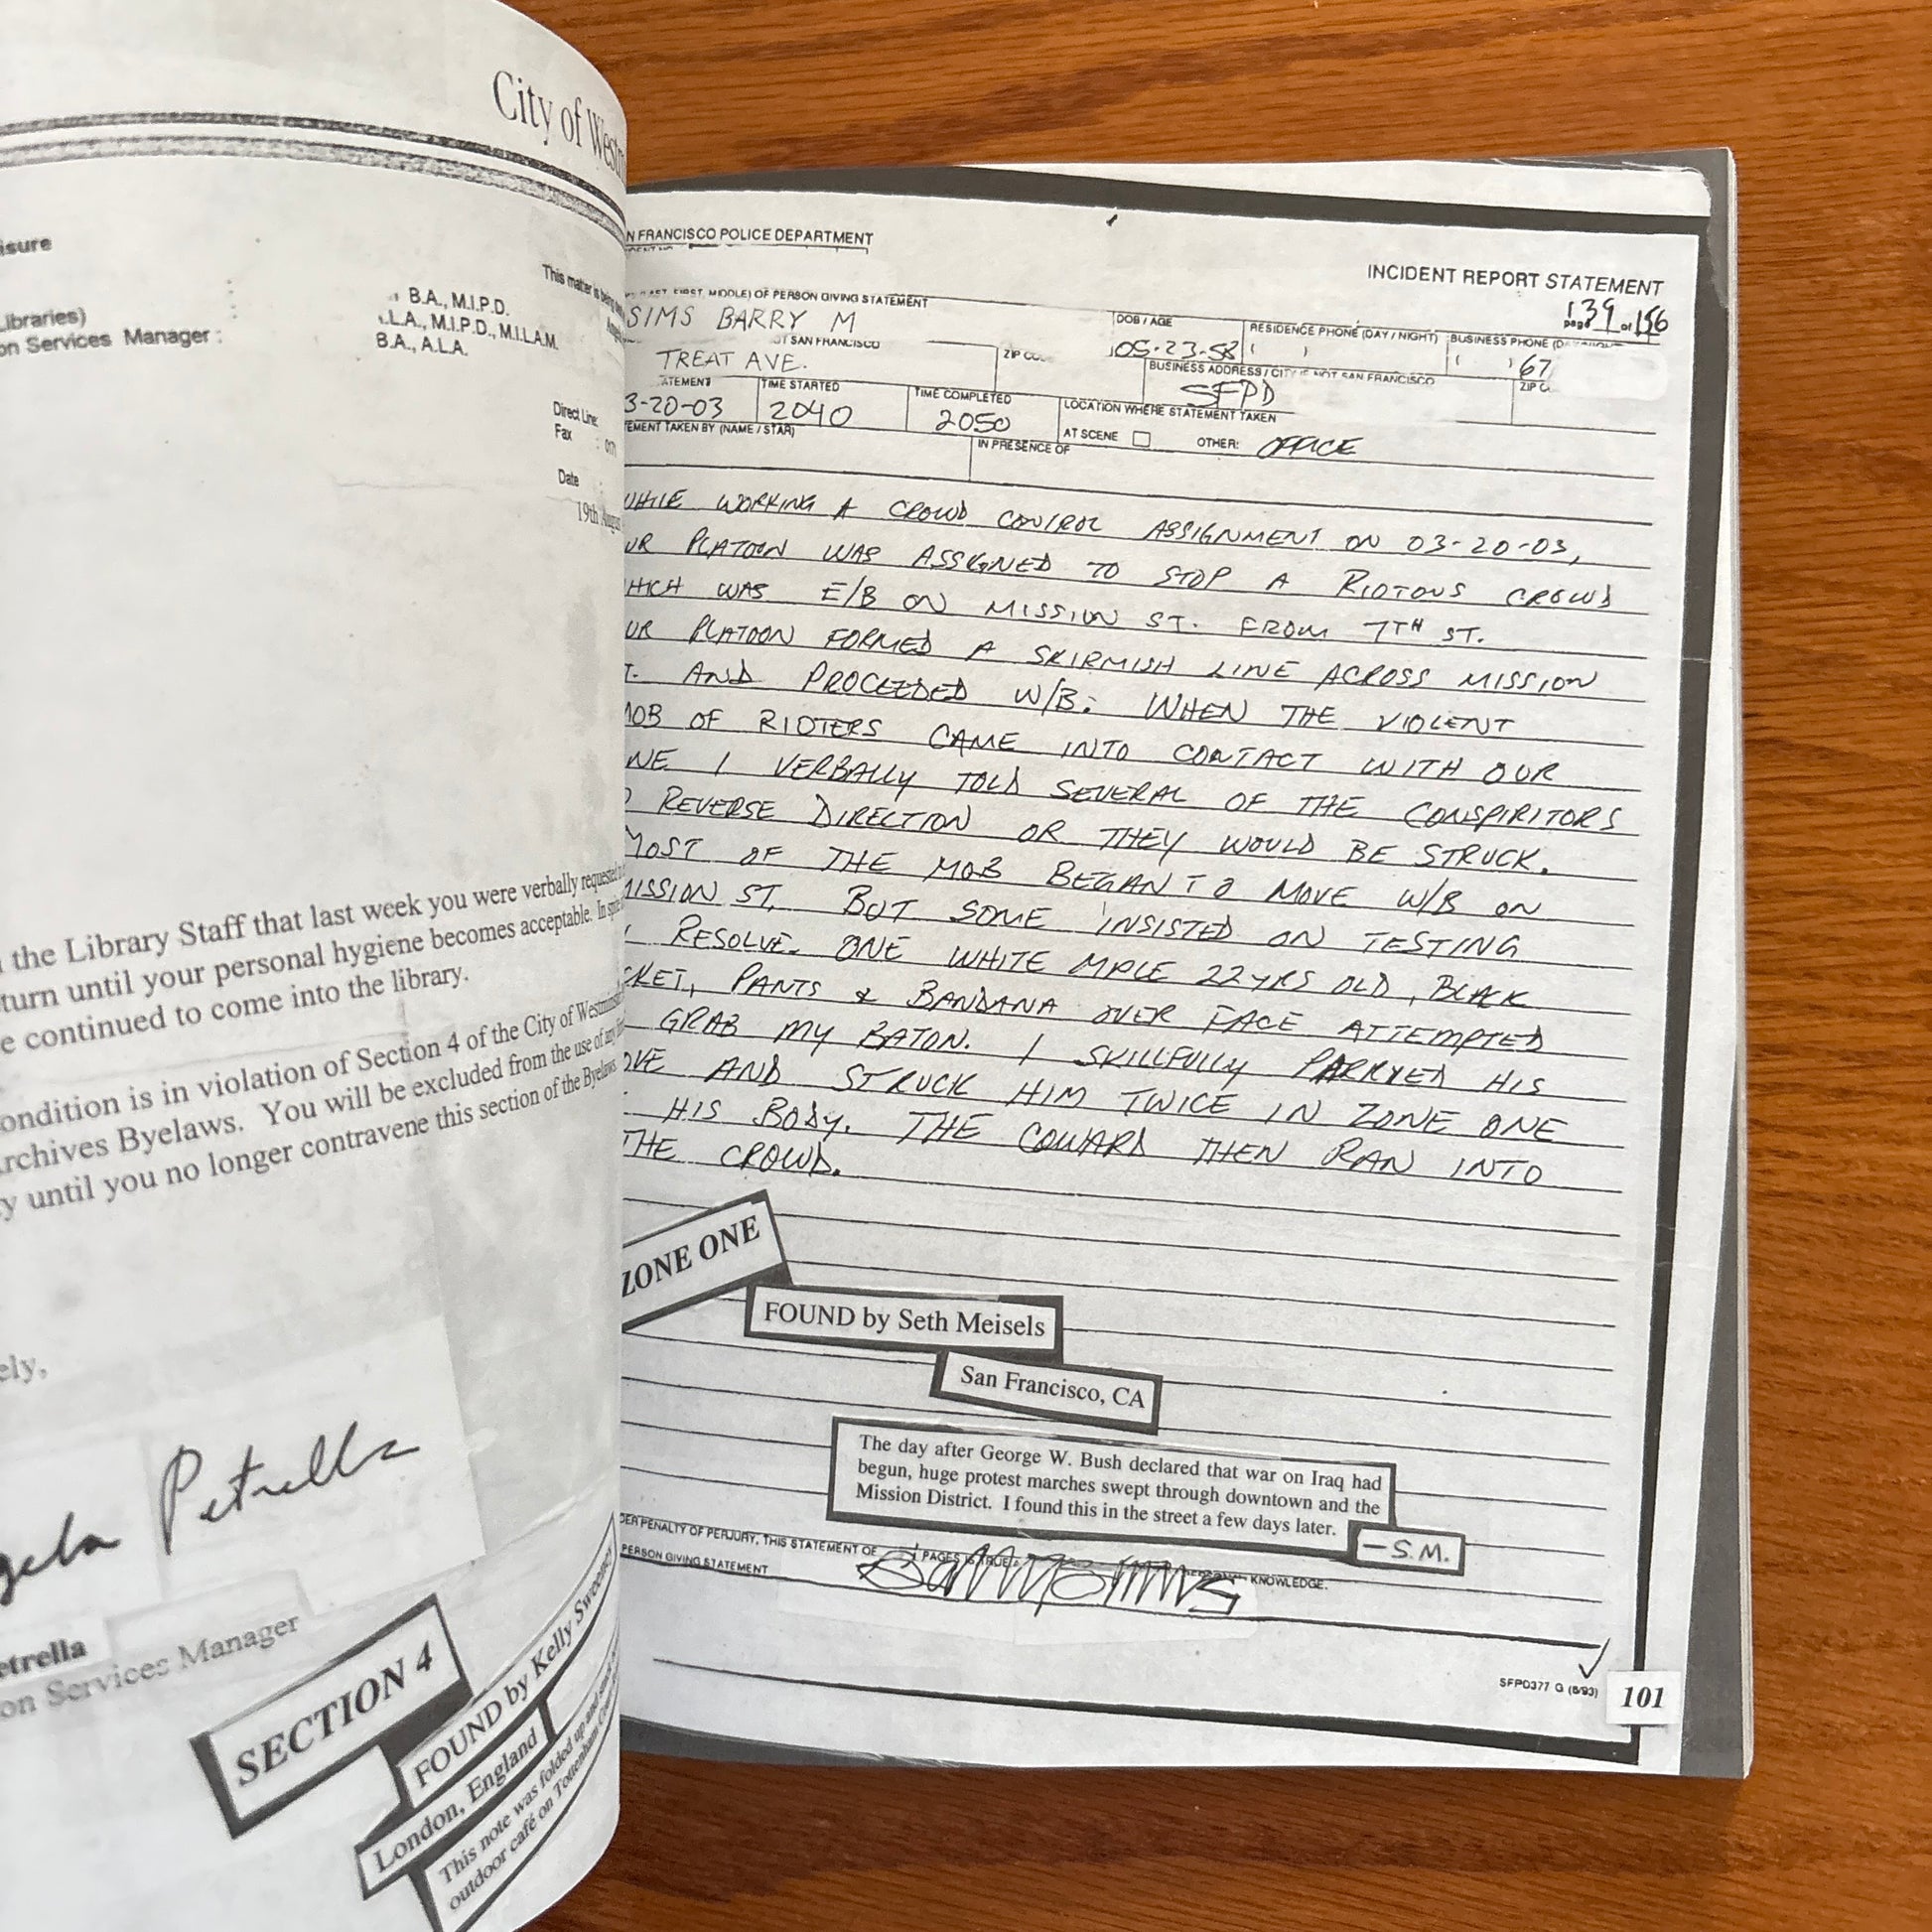 City of Westm
isure
This matter is being
B.A., M.I.P.D.
Libraries)
L.A., M.I.P.D., M.I.L.A.M.
on Services Manager :
B.A., A.L.A.
Direct Line
Fax
Date
19th August
n the Library Staff that last week you were verbally requested
turn until your personal hygiene becomes acceptable. In spite
e continued to come into the library.
ondition is in violation of Section 4 of the City of Westminster
rchives Byelaws. You will be excluded from the use of any
y until you no longer contravene this section of the Byelaws
ely,
gela Petrella
etrella
on Services Manager
SECTION 4
FOUND by Kelly Sweeney
London, England
This note was folded up and
outdoor café on Tottenham Co
N FRANCISCO POLICE DEPARTMENT
INCIDENT REPORT STATEMENT
page 139 of 156
FIRST, MIDDLE) OF PERSON GIVING STATEMENT
SIMS BARRY M
DOB / AGE
05-23-58
RESIDENCE PHONE (DAY / NIGHT)
( )
BUSINESS PHONE (D
( ) 67
OT SAN FRANCISCO
TREAT AVE.
ZIP CO
BUSINESS ADDRESS / CITY IF NOT SAN FRANCISCO
SFPD
ZIP C
ATEMENT
3-20-03
TIME STARTED
2040
TIME COMPLETED
2050
LOCATION WHERE STATEMENT TAKEN
AT SCENE
OTHER: OFFICE
EMENT TAKEN BY (NAME / STAR)
IN PRESENCE OF
WHILE WORKING A CROWD CONTROL ASSIGNMENT ON 03-20-03,
UR PLATOON WAS ASSIGNED TO STOP A RIOTOUS CROWD
HICH WAS E/B ON MISSION ST. FROM 7TH ST.
UR PLATOON FORMED A SKIRMISH LINE ACROSS MISSION
T. AND PROCEEDED W/B. WHEN THE VIOLENT
MOB OF RIOTERS CAME INTO CONTACT WITH OUR
NE I VERBALLY TOLD SEVERAL OF THE CONSPIRITORS
O REVERSE DIRECTION OR THEY WOULD BE STRUCK.
MOST OF THE MOB BEGAN TO MOVE W/B ON
MISSION ST, BUT SOME INSISTED ON TESTING
RESOLVE. ONE WHITE MALE 22YRS OLD, BLACK
CKET, PANTS & BANDANA OVER FACE ATTEMPTED
GRAB MY BATON. I SKILLFULLY PARRYED HIS
OVE AND STRUCK HIM TWICE IN ZONE ONE
HIS BODY. THE COWARD THEN RAN INTO
THE CROWD.
ZONE ONE
FOUND by Seth Meisels
San Francisco, CA
The day after George W. Bush declared that war on Iraq had
begun, huge protest marches swept through downtown and the
Mission District. I found this in the street a few days later.
— S.M.
DER PENALTY OF PERJURY, THIS STATEMENT OF 1 PAGES IS TRUE
KNOWLEDGE.
PERSON GIVING STATEMENT
SFPD377 G (8/93)
101